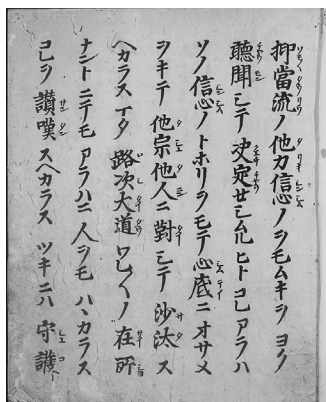 抑當流ノ他力信心ノヲモムキヲヨク
聽聞シテ決定セシムルヒトコレアラハ
ソノ信心ノトホリヲモテ心底ニオサメ
ヲキテ他宗他人ニ對シテ沙汰ス
ヘカラスイタ路次大道ワレ〱ノ在所
ナントニテモアラハニ人ヲモハヽカラス
コレヲ讃嘆スヘカラスツキニハ守護